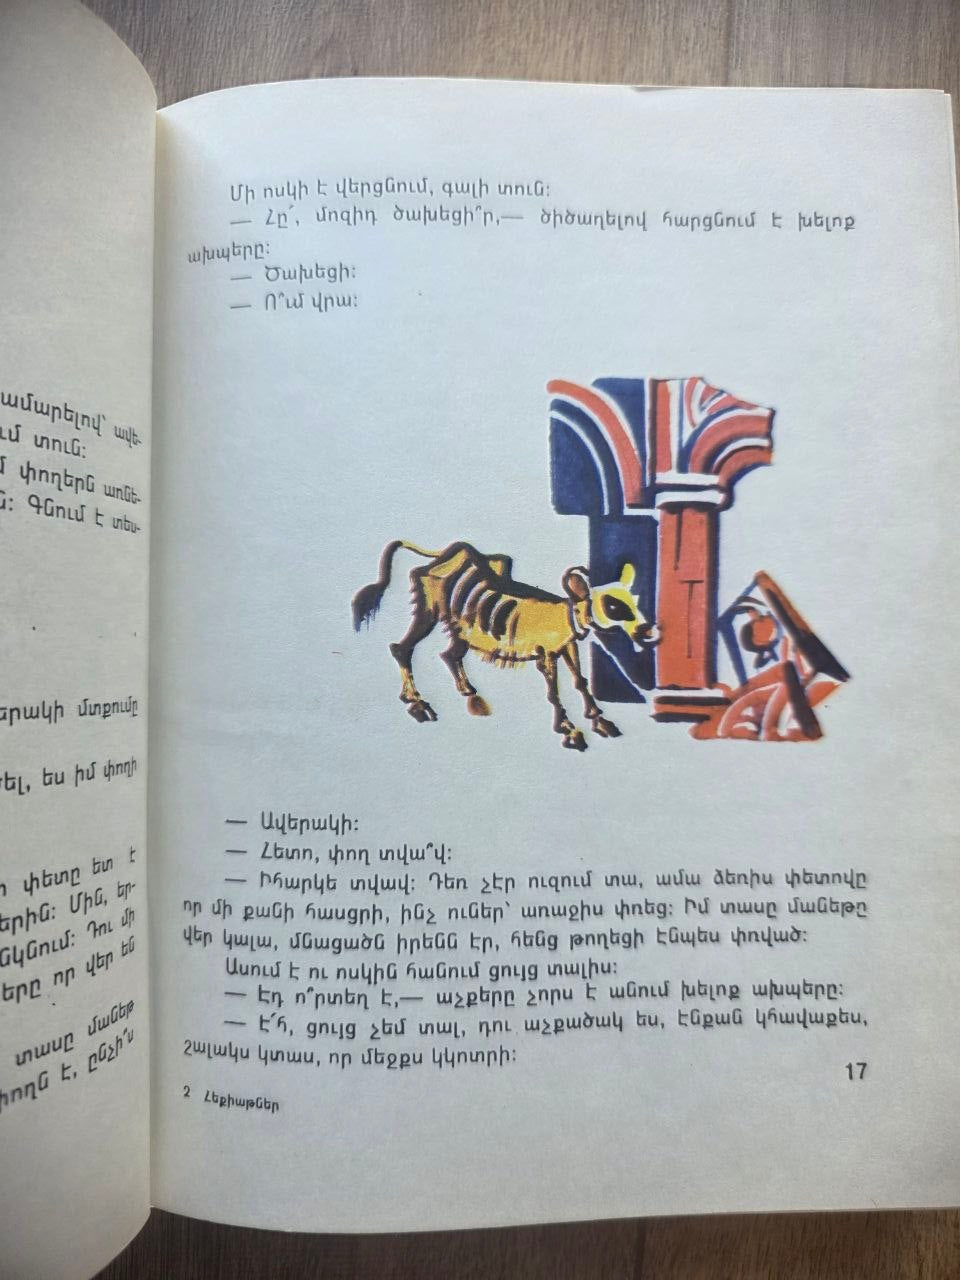 ամարելով՝ ավե-
ւմ տուն։
մ փողերն առնե-
ն։ Գնում է տես-
երակի մտքումը
ել, ես իմ փողի
փետը ետ է
երին։ Մին, եր-
նկնում։ Դու մի
երը որ վեր են
տասը մանեթ
փողն է, ընչի՞ս
Մի ոսկի է վերցնում, գալի տուն։
— Հը՛, մոզիդ ծախեցի՞ր,— ծիծաղելով հարցնում է խելոք
ախպերը։
— Ծախեցի։
— Ո՞ւմ վրա։
— Ավերակի։
— Հետո, փող տվա՞վ։
— Իհարկե տվավ։ Դեռ չէր ուզում տա, ամա ձեռիս փետովը
որ մի քանի հասցրի, ինչ ուներ՝ առաջիս փռեց։ Իմ տասը մանեթը
վեր կալա, մնացածն իրենն էր, հենց թողեցի էնպես փոված։
Ասում է ու ոսկին հանում ցույց տալիս։
— Էդ ո՞րտեղ է,— աչքերը չորս է անում խելոք ախպերը։
— Է՛հ, ցույց չեմ տալ, դու աչքածակ ես, էնքան կհավաքես,
շալակս կտաս, որ մեջքս կկոտրի։
17
2 Հեքիաթներ